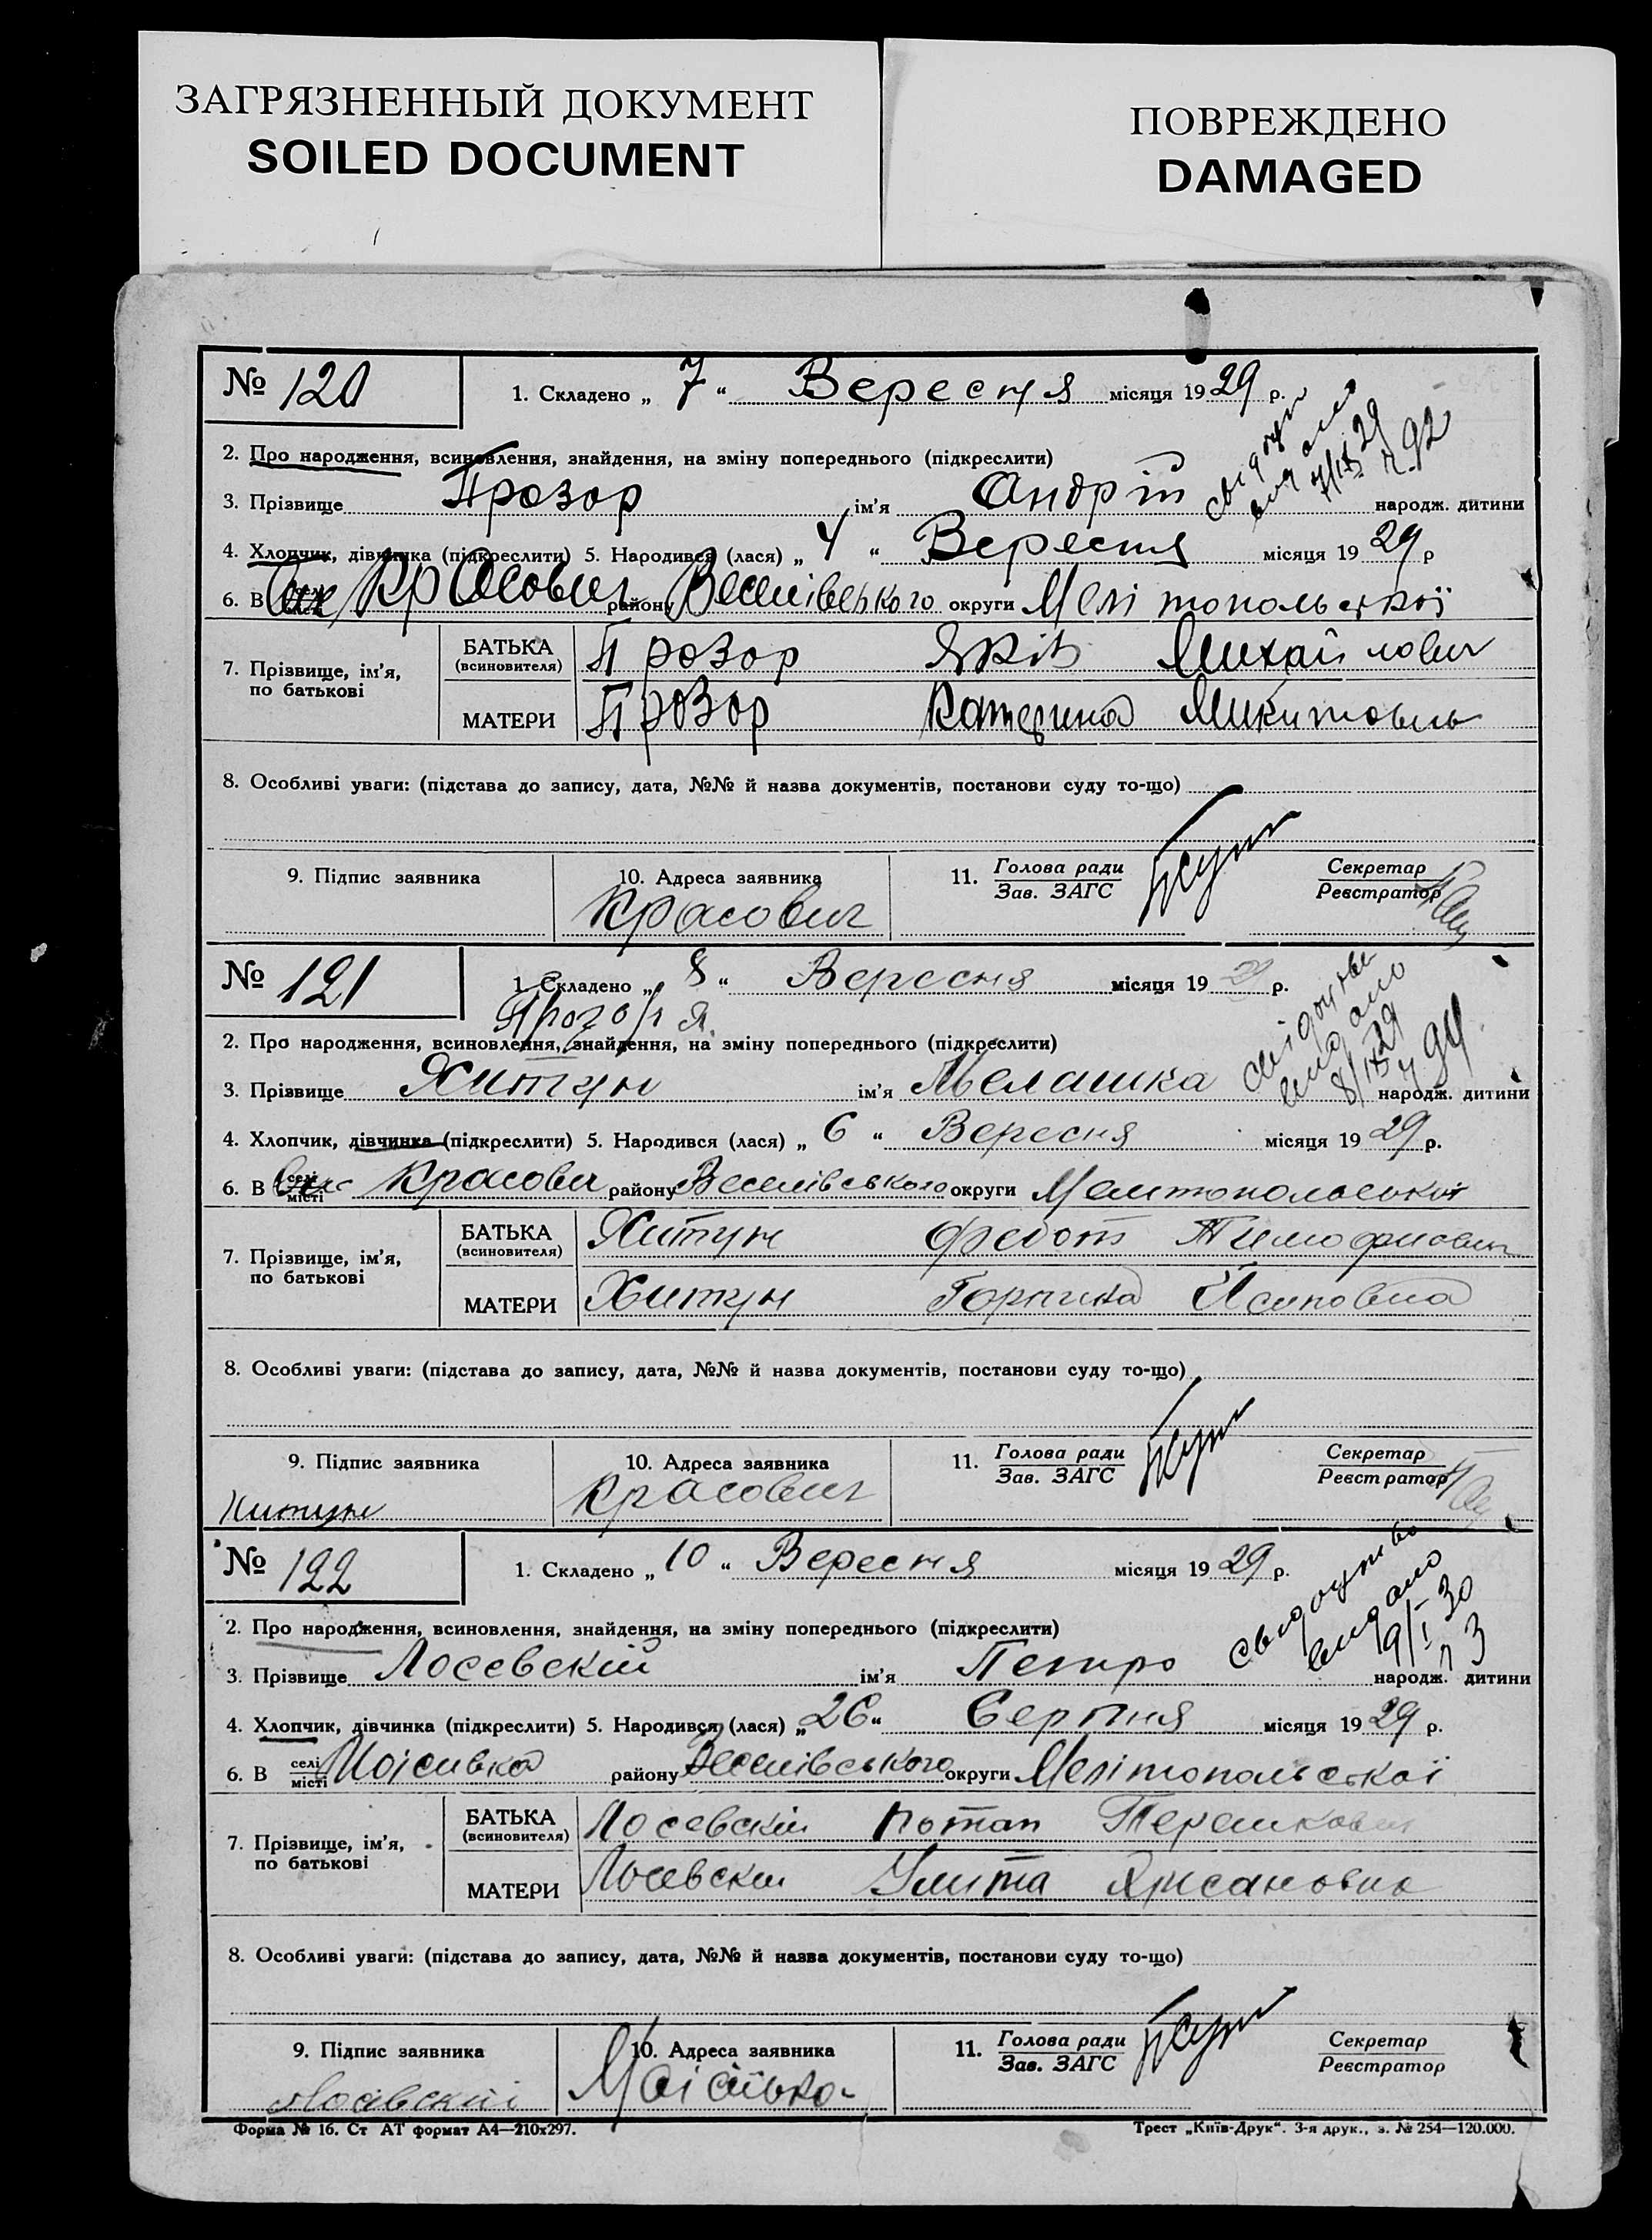 ЗАГРЯЗНЕННЫЙ ДОКУМЕНТ
SOILED DOCUMENT
ПОВРЕЖДЕНО
DAMAGED
№ 120
1. Складено „ 7 “ Вересня місяця 1929 р.
2. Про народження, всиновлення, знайдення, на зміну попереднього (підкреслити)
видано 7/IX 29 ч. 92
3. Прізвище Прозор ім'я Андрій народж. дитини
4. Хлопчик, дівчинка (підкреслити) 5. Народився (лася) „ 4 “ Вересня місяця 1929 р
6. В Красович району Веселівського округи Мелітопольської
7. Прізвище, ім'я, по батькові
БАТЬКА (всиновителя) Прозор Яків Михайлович
МАТЕРИ Прозор Катерина
8. Особливі уваги: (підстава до запису, дата, №№ й назва документів, постанови суду то-що)
9. Підпис заявника
10. Адреса заявника Красович
11. Голова ради Зав. ЗАГС
Секретар Реєстратор
№ 121
1. Складено „ 8 “ Вересня місяця 1929 р.
2. Про народження, всиновлення, знайдення, на зміну попереднього (підкреслити)
видано 8/IX 29 ч 94
3. Прізвище Хитун ім'я Мелашка народж. дитини
4. Хлопчик, дівчинка (підкреслити) 5. Народився (лася) „ 6 “ Вересня місяця 1929 р.
6. В селі місті Красович району Веселівського округи Мелітопольської
7. Прізвище, ім'я, по батькові
БАТЬКА (всиновителя) Хитун Федот Тимофиович
МАТЕРИ Хитун Горпина Йсиповна
8. Особливі уваги: (підстава до запису, дата, №№ й назва документів, постанови суду то-що)
9. Підпис заявника Хитун
10. Адреса заявника Красович
11. Голова ради Зав. ЗАГС
Секретар Реєстратор
№ 122
1. Складено „ 10 “ Вересня місяця 1929 р.
2. Про народження, всиновлення, знайдення, на зміну попереднього (підкреслити)
свидоцтво видано 9/I 30 ч 3
3. Прізвище Лосевский ім'я Петро народж. дитини
4. Хлопчик, дівчинка (підкреслити) 5. Народився (лася) „ 26 “ Серпня місяця 1929 р.
6. В селі місті Моісивка району Веселівського округи Мелітопольської
7. Прізвище, ім'я, по батькові
БАТЬКА (всиновителя) Лосевский Потап Терешкович
МАТЕРИ Лосевски Улита
8. Особливі уваги: (підстава до запису, дата, №№ й назва документів, постанови суду то-що)
9. Підпис заявника Лосевский
10. Адреса заявника Моісівка
11. Голова ради Зав. ЗАГС
Секретар Реєстратор
Форма № 16. Ст АТ формат А4—210х297.
Трест „Київ-Друк“. 3-я друк., з. № 254—120.000.